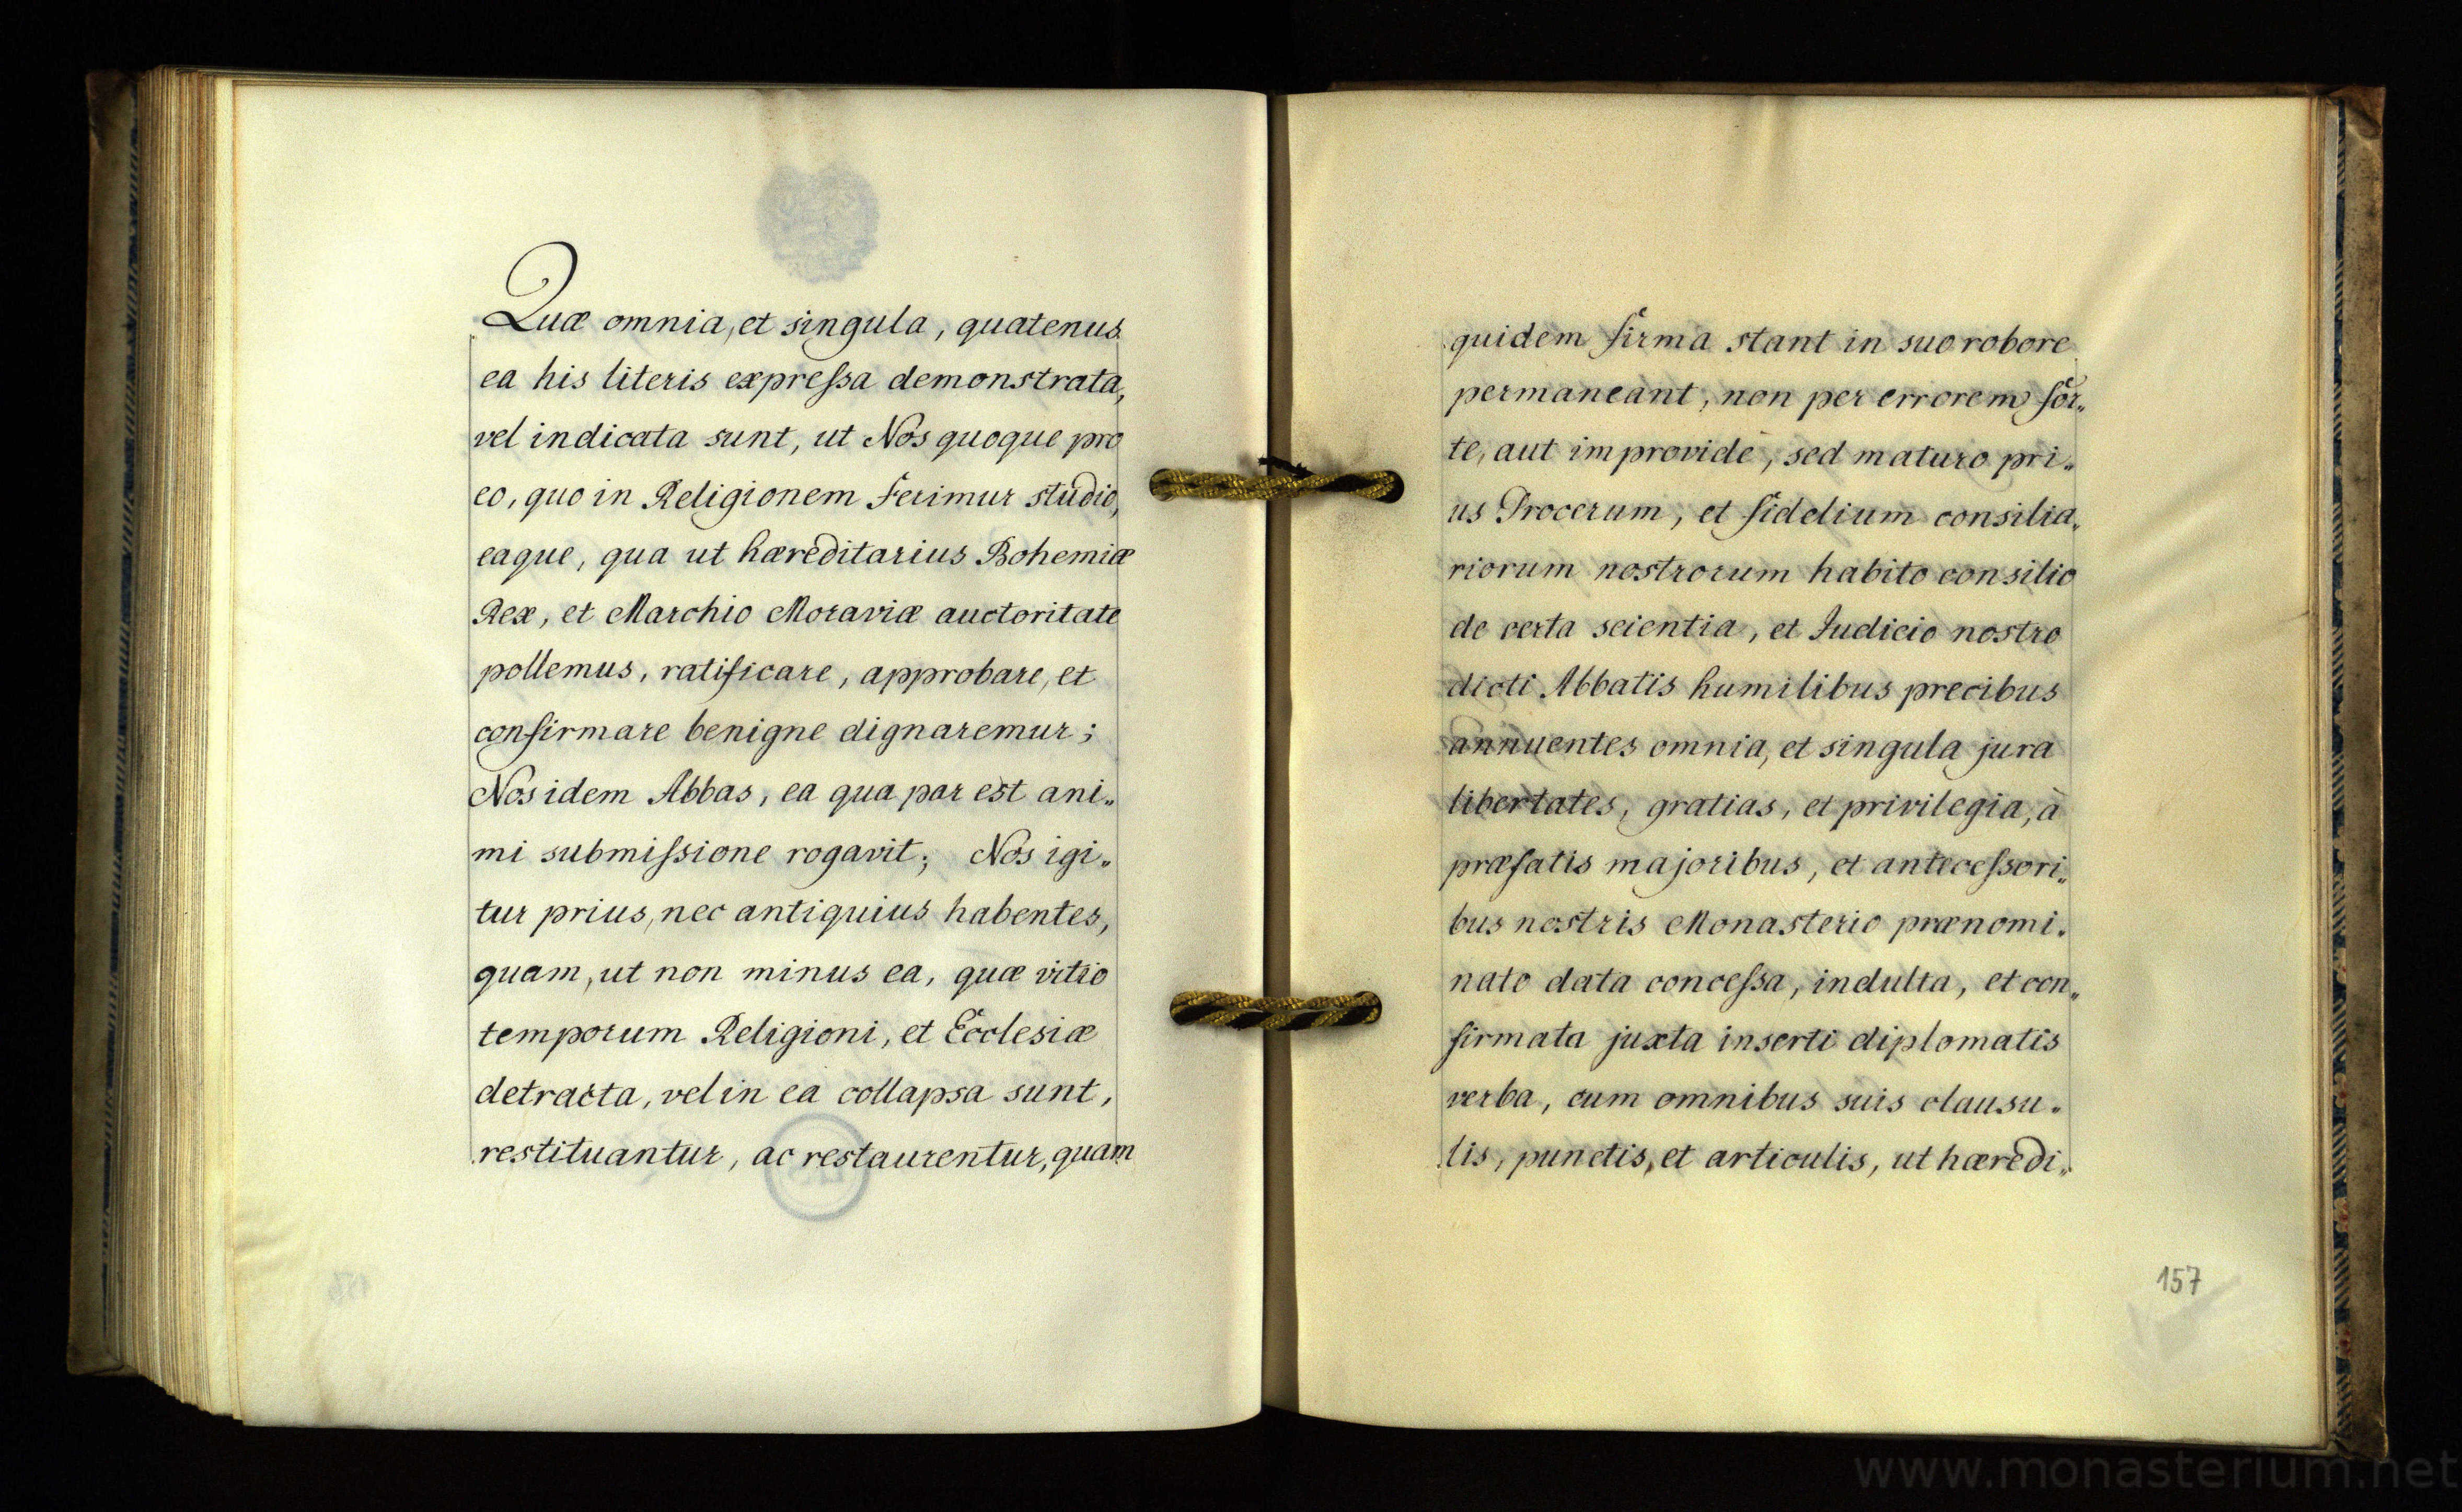 Quæ omnia, et singula, quatenus
ea his literis expreſsa demonstrata,
vel indicata sunt, ut Nos quoque pro
eo, quo in Religionem ferimur studio,
eaque, qua ut hæreditarius Bohemiæ
Rex, et Marchio Moraviæ auctoritate
pollemus, ratificare, approbare, et
confirmare benigne dignaremur;
Nos idem Abbas, ea qua par est ani„
mi submiſsione rogavit; Nos igi„
tur prius, nec antiquius habentes,
quam, ut non minus ea, quæ vitio
temporum Religioni, et Ecclesiæ
detracta, vel in ea collapsa sunt,
restituantur, ac restaurentur, quam
quidem firma stant in suo robore
permaneant, non per errorem for„
te, aut improvidè, sed maturo pri„
us Procerum, et fidelium consilia„
riorum nostrorum habito consilio
de certa scientia, et Judicio nostro
dicti Abbatis humilibus precibus
annuentes omnia, et singula jura
libertates, gratias, et privilegia, à
præfatis majoribus, et anteceſsori„
bus nostris Monasterio prænomi„
nato data conceſsa, indulta, et con„
firmata juxta inserti diplomatis
verba, cum omnibus suis clausu„
lis, punctis, et articulis, ut hæredi„
157
www.monasterium.net